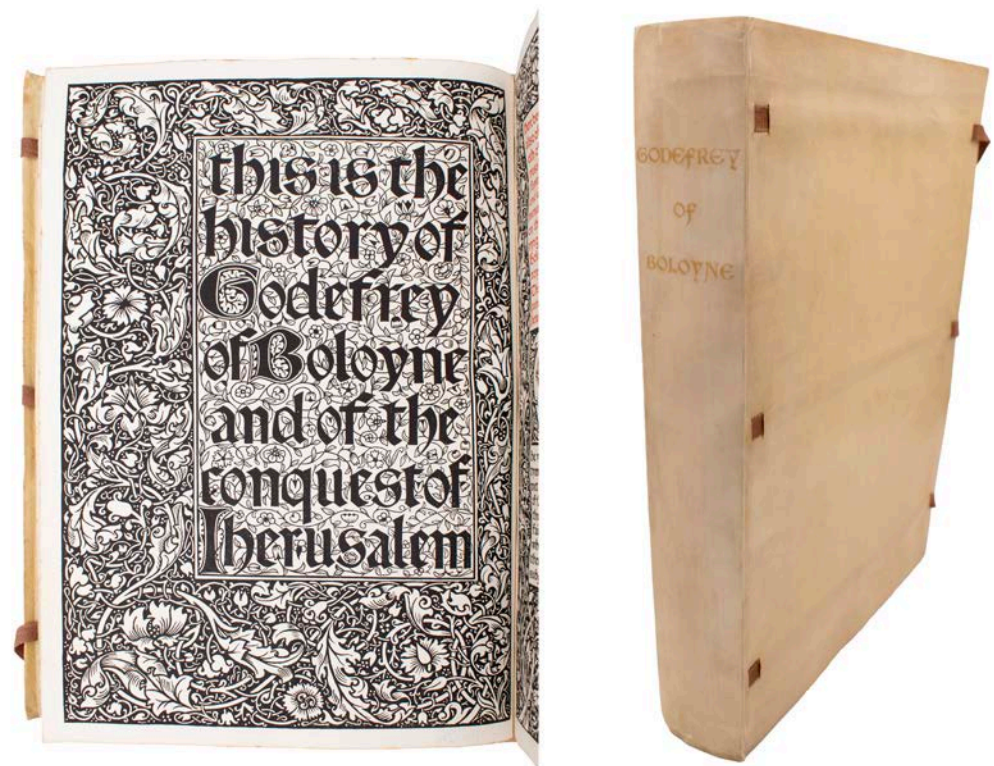 this is the
history of
Godefrey
of Boloyne
and of the
conquest of
Iherusalem
GODEFREY
OF
BOLOYNE